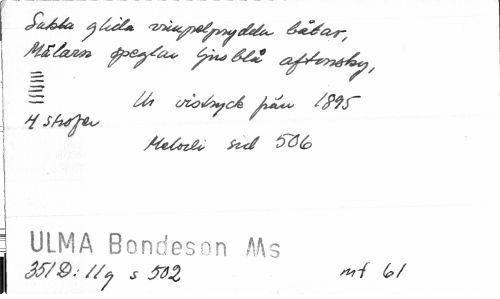 Sakta glida vimpelprydda båtar,
Mälarn speglar ljusblå aftonsky,
4 strofer
Ur vistryck från 1895
Melodi sid 506
ULMA Bondeson Ms
351 D: 11 g s 502
mf 61